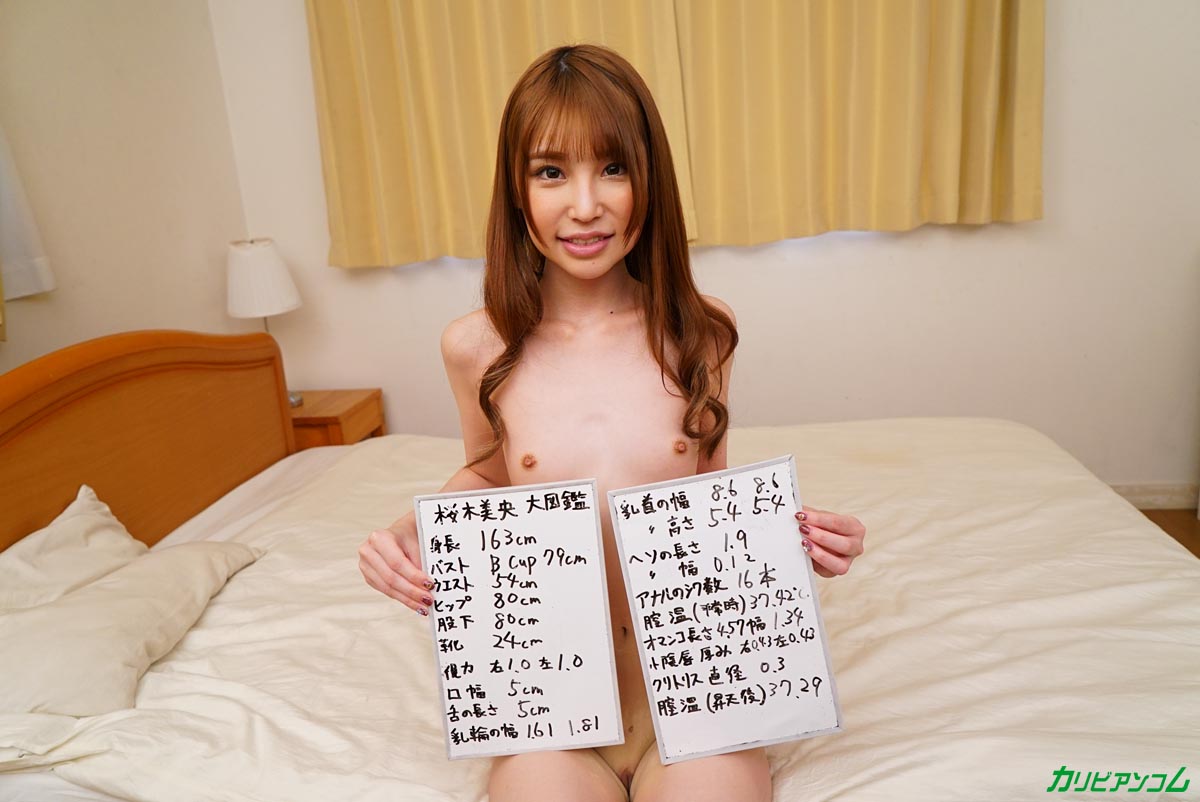 桜木美央 大図鑑
身長 163cm
バスト B cup 79cm
ウエスト 54cm
ヒップ 80cm
股下 80cm
靴 24cm
視力 右1.0 左1.0
口幅 5cm
舌の長さ 5cm
乳輪の幅 1.61 1.81
乳首の幅 8.6 8.6
〃 高さ 5.4 5.4
ヘソの長さ 1.9
〃 幅 0.12
アナルのシワ数 16本
膣温(平常時)37.42℃
オマンコ長さ4.57幅1.34
小陰唇厚み 右0.43左0.43
クリトリス直径 0.3
膣温(昇天後)37.29
カリビアンコム